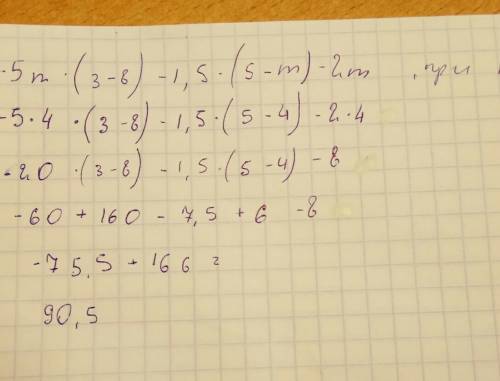 -5m · (3-8) -1,5 · (5-m) -2m , при
-5·4 · (3-8) -1,5 · (5-4) -2·4
-20 · (3-8) -1,5 · (5-4) -8
-60 + 160 - 7,5 + 6 -8
-75,5 + 166 =
90,5